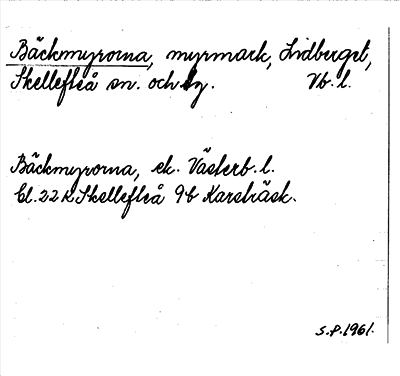 Bäckmyrorna, myrmark, Lidberget,
Skellefteå sn. och tg. Vb. l.
Bäckmyrorna, ek. Västerb. l.
Bl. 22 K Skellefteå 9b Karsträsk.
S.P. 1961.